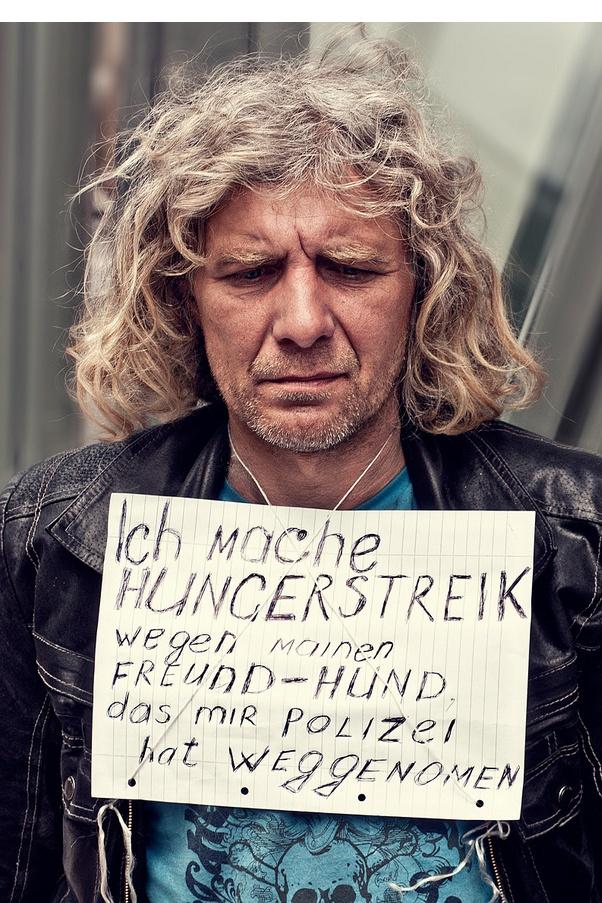 Ich MAChe
HUNGERSTREIK
wegen mainen
FREUND-HUND,
das MIR POLIZEI
hat WEGGENOMEN